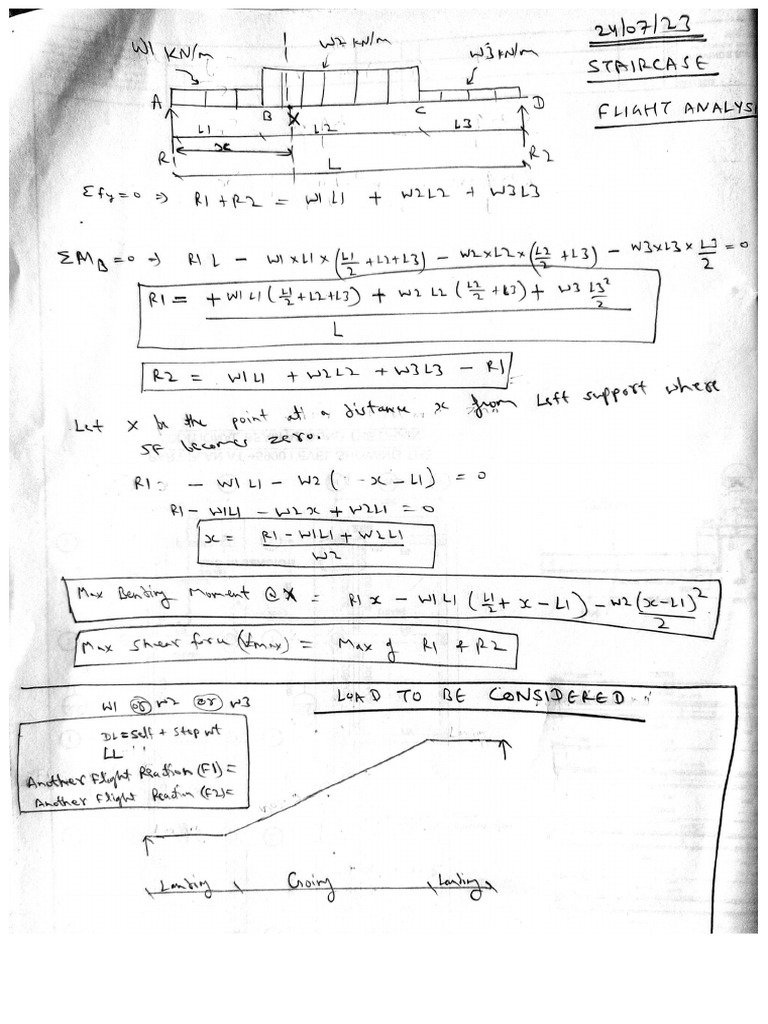 24/07/23
STAIRCASE
FLIGHT ANALYS
W1 KN/m
W2 KN/m
W3 KN/m
A B X C D
L1 L2 L3
x
R R2
L
Σfy=0 ⇒ R1+R2 = W1L1 + W2L2 + W3L3
ΣMB=0 ⇒ R1L - W1×L1×(L1/2+L2+L3) - W2×L2×(L2/2+L3) - W3×L3×L3/2=0
R1 = +W1L1(L1/2+L2+L3) + W2L2(L2/2+L3) + W3 L3²/2
L
R2 = W1L1 + W2L2 + W3L3 - R1
Let X be the point at a distance x from Left support where
SF becomes zero.
R1 - W1L1 - W2(x-L1) = 0
R1-W1L1 - W2x + W2L1 = 0
x = R1-W1L1+W2L1
W2
Max Bending Moment @ X = R1x - W1L1(L1/2+x-L1) - W2(x-L1)²/2
Max Shear force (Vmax) = Max of R1 & R2
LOAD TO BE CONSIDERED
W1 or W2 or W3
DL=Self + Step wt
LL "
Another Flight Reaction (F1)=
Another Flight Reaction (F2)=
Landing Going Landing